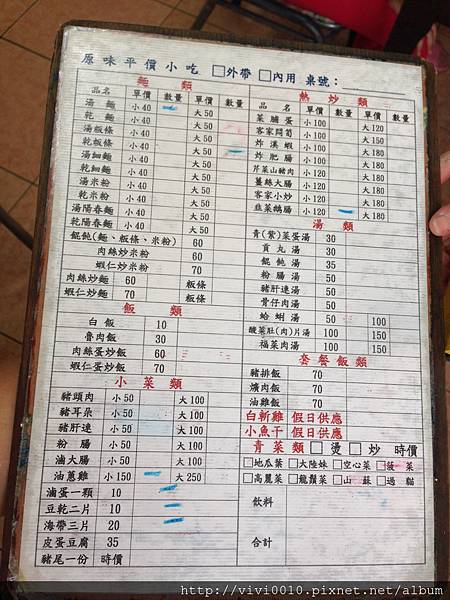 原味平價小吃 □外帶 □內用 桌號：
麵類
品名 單價 數量 單價 數量
湯麵 小40 大50
乾麵 小40 大50
湯板條 小40 大50
乾板條 小40 大50
湯細麵 小40 大50
乾細麵 小40 大50
湯米粉 小40 大50
乾米粉 小40 大50
湯陽春麵 小40 大50
乾陽春麵 小40 大50
餛飩(麵、板條、米粉) 60
肉絲炒米粉 60
蝦仁炒米粉 70
肉絲炒麵 60 板條
蝦仁炒麵 70 板條
飯類
白飯 10
魯肉飯 30
肉絲蛋炒飯 60
蝦仁蛋炒飯 70
小菜類
豬頭肉 小50 大100
豬耳朵 小50 大100
豬肝連 小50 大100
粉腸 小50 大100
滷大腸 小50 大100
油蔥雞 小150 大250
滷蛋一顆 10
豆乾二片 10
海帶三片 20
皮蛋豆腐 35
豬尾一份 時價
熱炒類
品名 單價 數量 單價 數量
菜脯蛋 小100 大120
客家悶筍 小100 大150
炸溪蝦 小100 大180
炸肥腸 小100 大180
芹菜山豬肉 小120 大180
薑絲大腸 小120 大180
客家小炒 小120 大180
韭菜鵝腸 小120 大180
湯類
青(紫)菜蛋湯 30
貢丸湯 30
餛飩湯 35
粉腸湯 50
豬肝連湯 50
骨仔肉湯 50
蛤蜊湯 50 100
酸菜肚(肉)片湯 100 150
福菜肉湯 100 150
套餐飯類
豬排飯 70
爌肉飯 70
油雞飯 70
白斬雞 假日供應
小魚干 假日供應
青菜類 □燙 □炒 時價
□地瓜葉 □大陸妹 □空心菜 □菠菜
□高麗菜 □龍鬚菜 □山蘇 □過貓
飲料
合計
http://vivi0010.pixnet.net/album